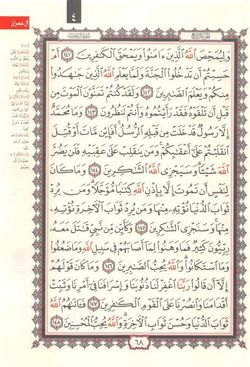 آل عمران
٤
وَلِيُمَحِّصَ اللَّهُ الَّذِينَ ءَامَنُوا وَيَمْحَقَ الْكَٰفِرِينَ ١٤١ أَمْ
حَسِبْتُمْ أَن تَدْخُلُوا الْجَنَّةَ وَلَمَّا يَعْلَمِ اللَّهُ الَّذِينَ جَٰهَدُوا
مِنكُمْ وَيَعْلَمَ الصَّٰبِرِينَ ١٤٢ وَلَقَدْ كُنتُمْ تَمَنَّوْنَ الْمَوْتَ مِن
قَبْلِ أَن تَلْقَوْهُ فَقَدْ رَأَيْتُمُوهُ وَأَنتُمْ تَنظُرُونَ ١٤٣ وَمَا مُحَمَّدٌ
إِلَّا رَسُولٌ قَدْ خَلَتْ مِن قَبْلِهِ الرُّسُلُ أَفَإِي۟ن مَّاتَ أَوْ قُتِلَ
انقَلَبْتُمْ عَلَىٰ أَعْقَٰبِكُمْ وَمَن يَنقَلِبْ عَلَىٰ عَقِبَيْهِ فَلَن يَضُرَّ
اللَّهَ شَيْـًٔا وَسَيَجْزِي اللَّهُ الشَّٰكِرِينَ ١٤٤ وَمَا كَانَ
لِنَفْسٍ أَن تَمُوتَ إِلَّا بِإِذْنِ اللَّهِ كِتَٰبًا مُّؤَجَّلًا وَمَن يُرِدْ
ثَوَابَ الدُّنْيَا نُؤْتِهِ مِنْهَا وَمَن يُرِدْ ثَوَابَ الْءَاخِرَةِ نُؤْتِهِ
مِنْهَا وَسَنَجْزِي الشَّٰكِرِينَ ١٤٥ وَكَأَيِّن مِّن نَّبِيٍّ قَٰتَلَ مَعَهُ
رِبِّيُّونَ كَثِيرٌ فَمَا وَهَنُوا لِمَا أَصَابَهُمْ فِي سَبِيلِ اللَّهِ وَمَا ضَعُفُوا
وَمَا اسْتَكَانُوا وَاللَّهُ يُحِبُّ الصَّٰبِرِينَ ١٤٦ وَمَا كَانَ قَوْلَهُمْ
إِلَّا أَن قَالُوا رَبَّنَا اغْفِرْ لَنَا ذُنُوبَنَا وَإِسْرَافَنَا فِي أَمْرِنَا وَثَبِّتْ
أَقْدَامَنَا وَانصُرْنَا عَلَى الْقَوْمِ الْكَٰفِرِينَ ١٤٧ فَـَٔاتَىٰهُمُ اللَّهُ
ثَوَابَ الدُّنْيَا وَحُسْنَ ثَوَابِ الْءَاخِرَةِ وَاللَّهُ يُحِبُّ الْمُحْسِنِينَ ١٤٨
٦٨